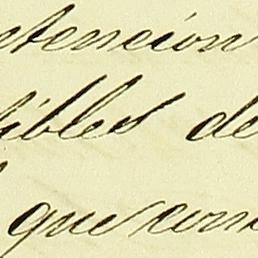 tencion
ibles de
que con